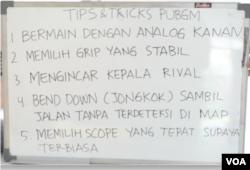 TIPS & TRICKS PUBGM
1 BERMAIN DENGAN ANALOG KANAN
2 MEMILIH GRIP YANG STABIL
3 MENGINCAR KEPALA RIVAL
4 BEND DOWN (JONGKOK) SAMBIL
JALAN TANPA TERDETEKSI DI MAP
5. MEMILIH SCOPE YANG TEPAT SUPAYA
TERBIASA
VOA